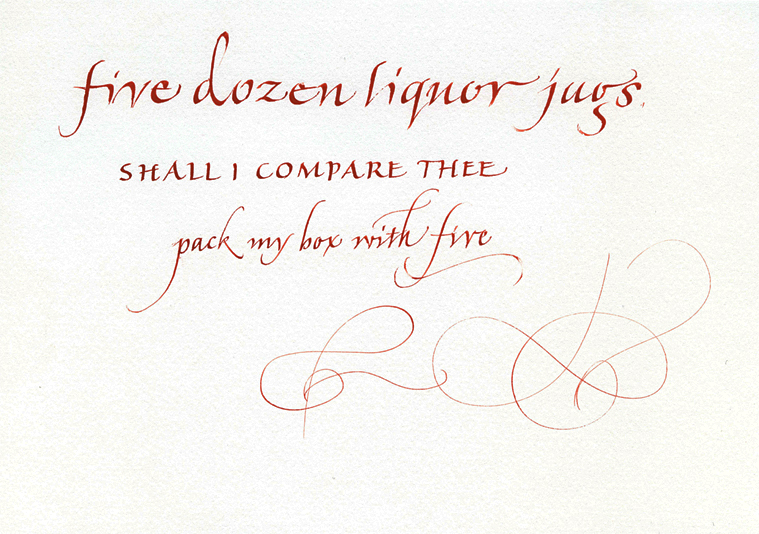 five dozen liquor jugs.
SHALL I COMPARE THEE
pack my box with five